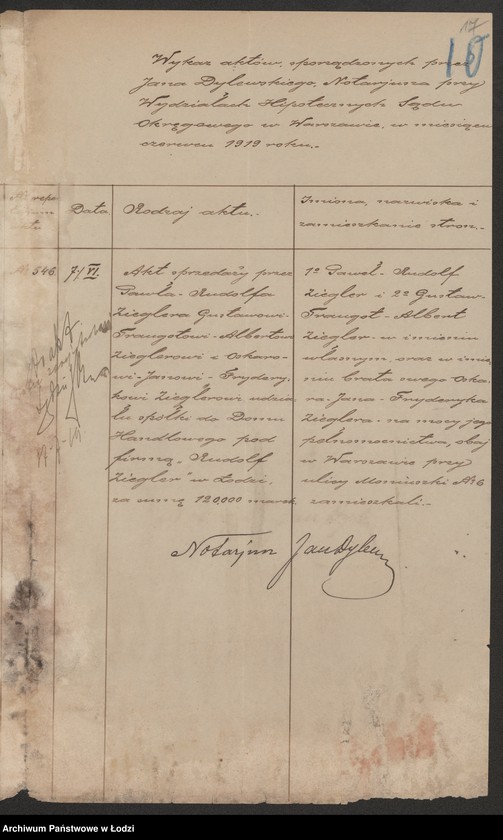 17
10
Wykaz aktów, sporządzonych przez
Jana Dylewskiego, Notarjusza przy
Wydziałach Hipotecznych Sądu
Okręgowego w Warszawie, w miesiącu
czerwcu 1919 roku.-
Data
Rodzaj aktu.-
Imiona, nazwiska i
zamieszkanie stron.-
№ 546.
7/VI.
Akt sprzedaży przez
Pawła-Rudolfa
Zieglera Gustawowi-
Traugotowi-Albertowi
Zieglerowi i Oskaro-
wi-Janowi-Frydery-
kowi Zieglerowi udzia-
łu spółki do Domu
Handlowego pod
firmą "Rudolf
Ziegler" w Łodzi,
za sumę 120,000 marek.
1º Paweł-Rudolf
Ziegler i 2º Gustaw-
Traugot-Albert
Ziegler-w imieniu
własnym, oraz w imie-
niu brata swego Oska-
ra-Jana-Fryderyka
Zieglera-na mocy jego
pełnomocnictwa, obaj
w Warszawie przy
ulicy Moniuszki № 6
zamieszkali.-
Notarjusz Jan Dylewski
Archiwum Państwowe w Łodzi